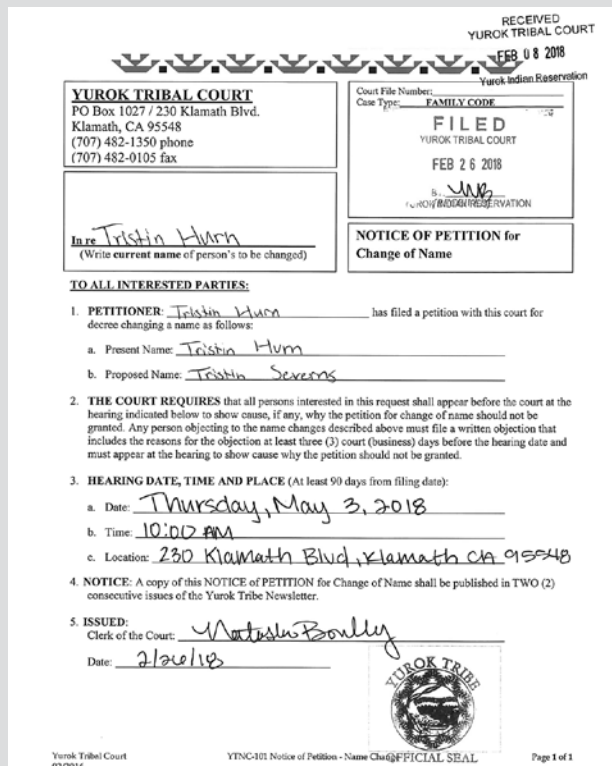 RECEIVED
YUROK TRIBAL COURT
FEB 08 2018
Yurok Indian Reservation
YUROK TRIBAL COURT
PO Box 1027 / 230 Klamath Blvd.
Klamath, CA 95548
(707) 482-1350 phone
(707) 482-0105 fax
Court File Number:
Case Type: FAMILY CODE
FILED
YUROK TRIBAL COURT
FEB 26 2018
YUROK INDIAN RESERVATION
In re Tristin Hurn
(Write current name of person's to be changed)
NOTICE OF PETITION for
Change of Name
TO ALL INTERESTED PARTIES:
1. PETITIONER: Tristin Hurn has filed a petition with this court for
decree changing a name as follows:
a. Present Name: Tristin Hurn
b. Proposed Name: Tristin Severns
2. THE COURT REQUIRES that all persons interested in this request shall appear before the court at the
hearing indicated below to show cause, if any, why the petition for change of name should not be
granted. Any person objecting to the name changes described above must file a written objection that
includes the reasons for the objection at least three (3) court (business) days before the hearing date and
must appear at the hearing to show cause why the petition should not be granted.
3. HEARING DATE, TIME AND PLACE (At least 90 days from filing date):
a. Date: Thursday, May 3, 2018
b. Time: 10:00 AM
c. Location: 230 Klamath Blvd, Klamath CA 95548
4. NOTICE: A copy of this NOTICE OF PETITION for Change of Name shall be published in TWO (2)
consecutive issues of the Yurok Tribe Newsletter.
5. ISSUED:
Clerk of the Court:
Date: 2/26/18
YUROK TRIBE
OFFICIAL SEAL
Yurok Tribal Court
YTNC-101 Notice of Petition - Name Change
Page 1 of 1